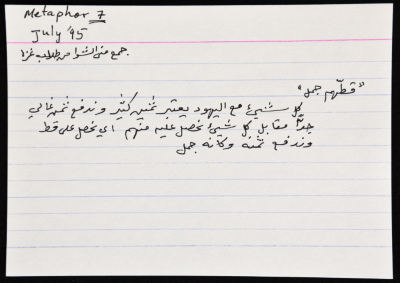 Metaphor 7
July '95
جمع منى الشوا من طلاب غزة
"قطّهم جمل"
كل شيئ مع اليهود يعتبر ثمين كثير وندفع ثمن غالي
جداً مقابل كل شيئ نحصل عليه منهم اي نحصل على قط
وندفع ثمنه وكأنه جمل